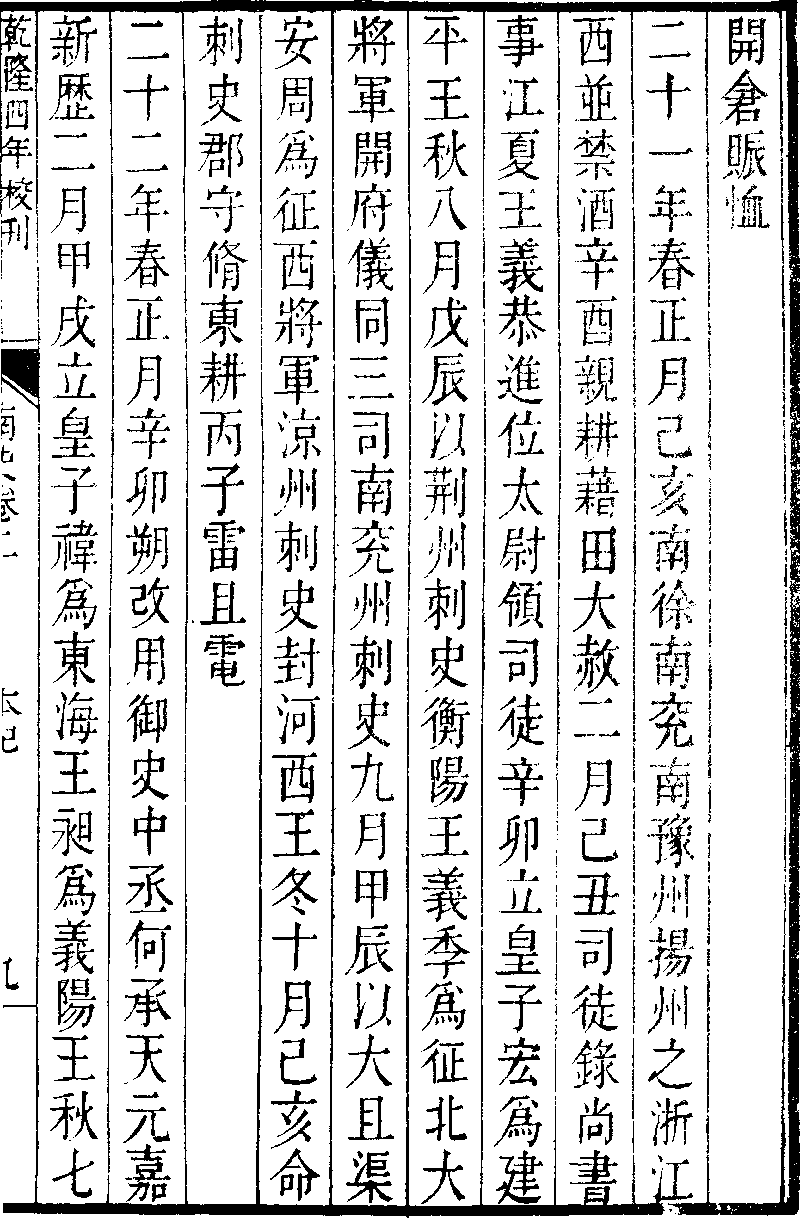 開倉賑恤
二十一年春正月己亥南徐南兗南豫州揚州之浙江
西並禁酒辛酉親耕藉田大赦二月己丑司徒錄尚書
事江夏王義恭進位太尉領司徒辛卯立皇子宏爲建
平王秋八月戊辰以荆州刺史衡陽王義季爲征北大
將軍開府儀同三司南兗州刺史九月甲辰以大且渠
安周爲征西將軍涼州刺史封河西王冬十月己亥命
刺史郡守脩東耕丙子雷且電
二十二年春正月辛卯朔改用御史中丞何承天元嘉
新歷二月甲戌立皇子禕爲東海王昶爲義陽王秋七
乾隆四年校刊
南史卷二
本紀
九